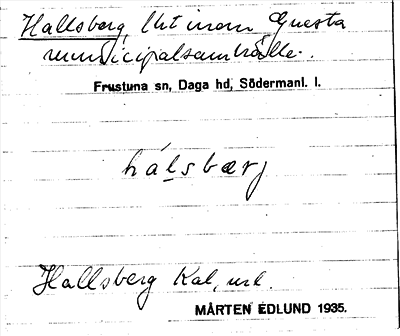 Hallsberg, lht inom Gnesta
municipalsamhälle.
Frustuna sn, Daga hd, Södermanl. l.
hálsbærj
Hallsberg Kal, url.
MÅRTEN EDLUND 1935.